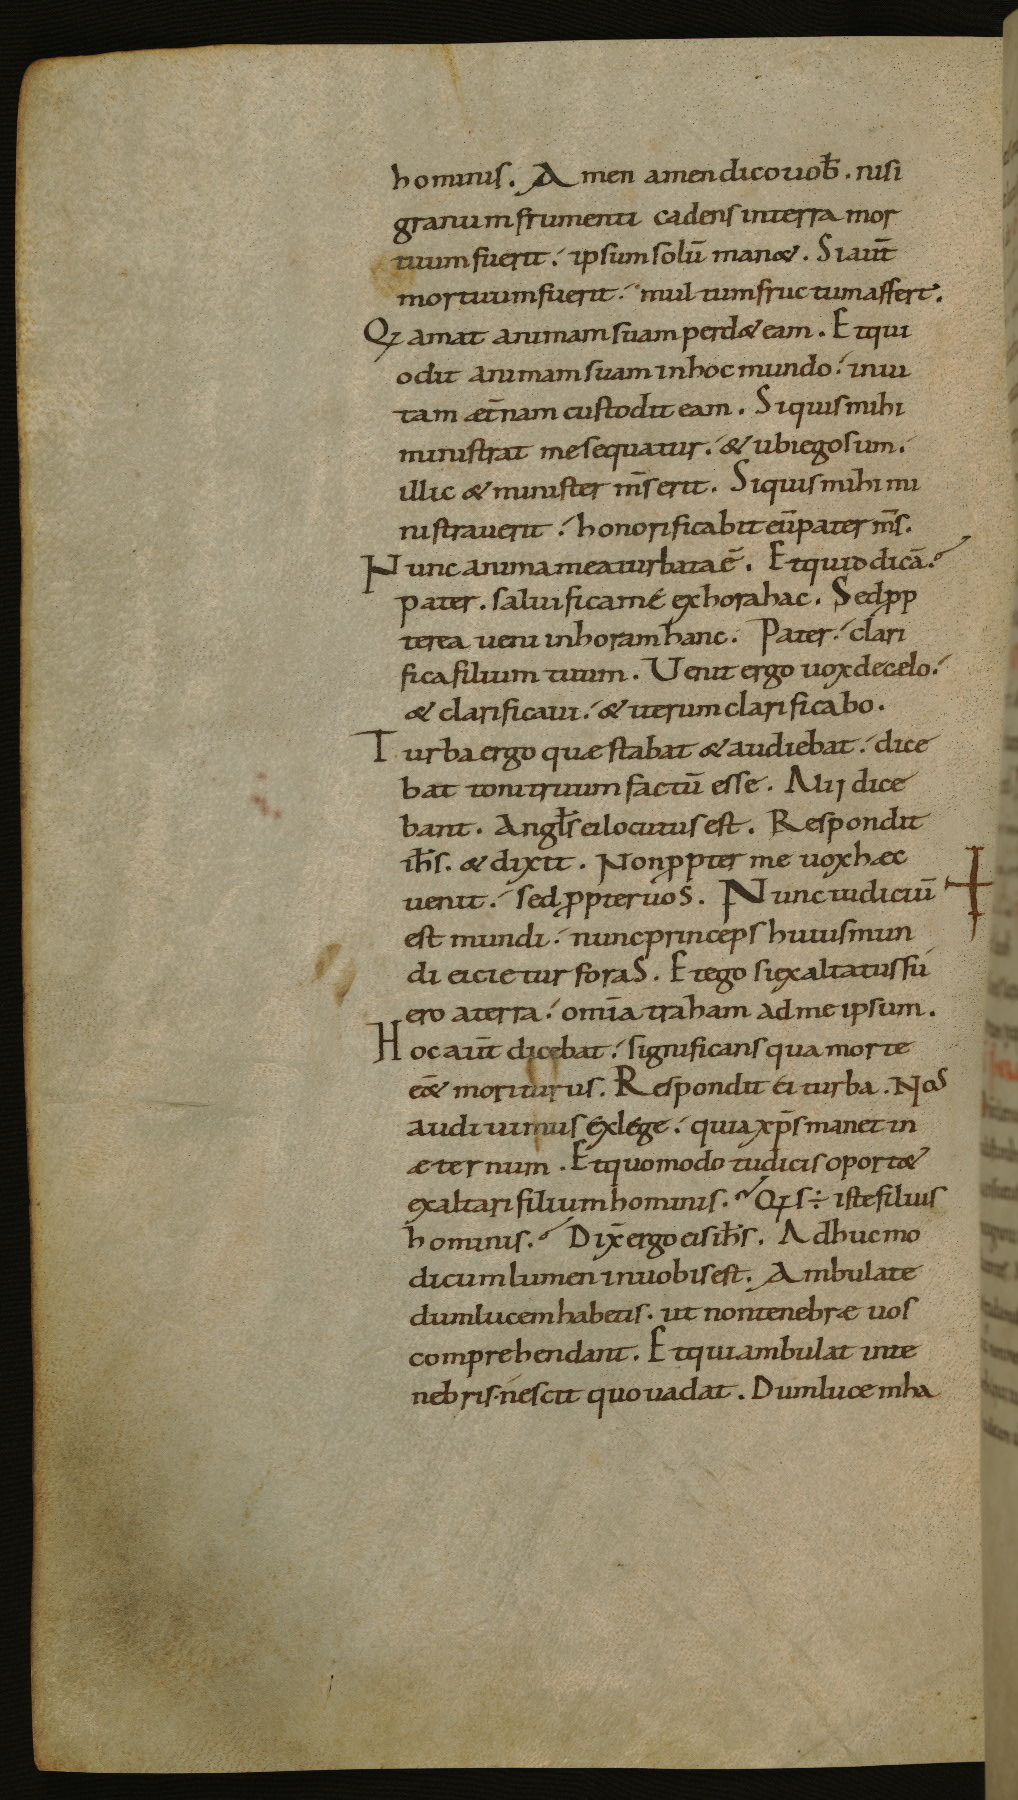 hominis. Amen amen dico uob̄. nisi
granum frumenti cadens in terra mor
tuum fuerit: ipsum solū man&. Si aut̄
mortuum fuerit: multum fructum affert.
Qi amat animam suam perd& eam. Et qui
odit animam suam in hoc mundo: in ui
tam æt̄nam custodit eam. Si quis mihi
ministrat me sequatur: & ubi ego sum:
illic & minister m̄s erit. Si quis mihi mi
nistrauerit: honorificabit eū pater m̄s.
Nunc anima mea turbata ē. Et quid dicā?
pater. saluifica me ex hora hac. Sed ꝓp
terea ueni in horam hanc. Pater: clari
fica filium tuum. Uenit ergo uox de celo:
& clarificaui: & iterum clarificabo.
Turba ergo quæ stabat & audiebat: dice
bat tonitruum factū esse. Alij dice
bant. Angl̄s ei locutus est. Respondit
ih̄s. & dixit. Non ꝓpter me uox hæc
uenit: sed ꝓpter uos. Nunc iudiciū
est mundi: nunc princeps huius mun
di eicietur foras. Et ego si exaltatus fu
ero a terra: om̄ia traham ad me ipsum.
Hoc aut̄ dicebat: significans qua morte
eēt moriturus. Respondit ei turba. Nos
audiuimus ex lege: quia xp̄s manet in
æternum. Et quomodo tu dicis oport&
exaltari filium hominis? Qis ÷ iste filius
hominis? Dix̄ ergo eis ih̄s. Adhuc mo
dicum lumen in uobis est. Ambulate
dum lucem habetis. ut non tenebræ uos
comprehendant. Et qui ambulat in te
nebris. nescit quo uadat. Dum lucem ha